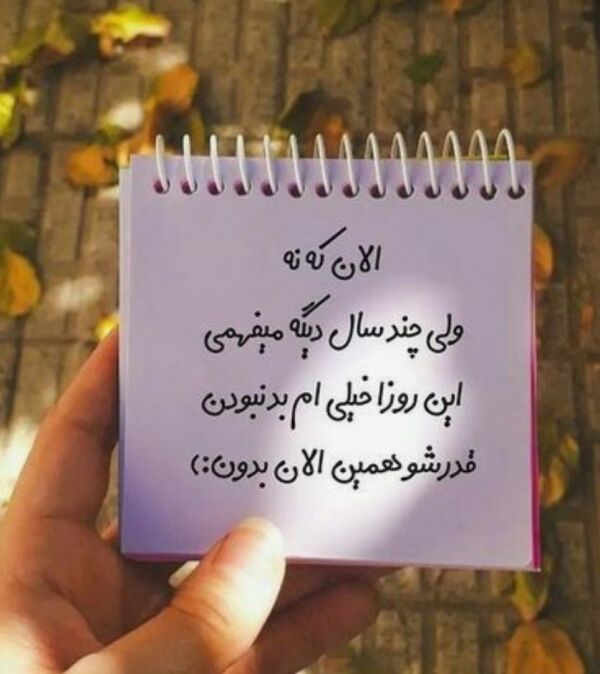 الان که نه
ولی چند سال دیگه میفهمی
این روزا خیلی ام بد نبودن
قدرشو همین الان بدون:)